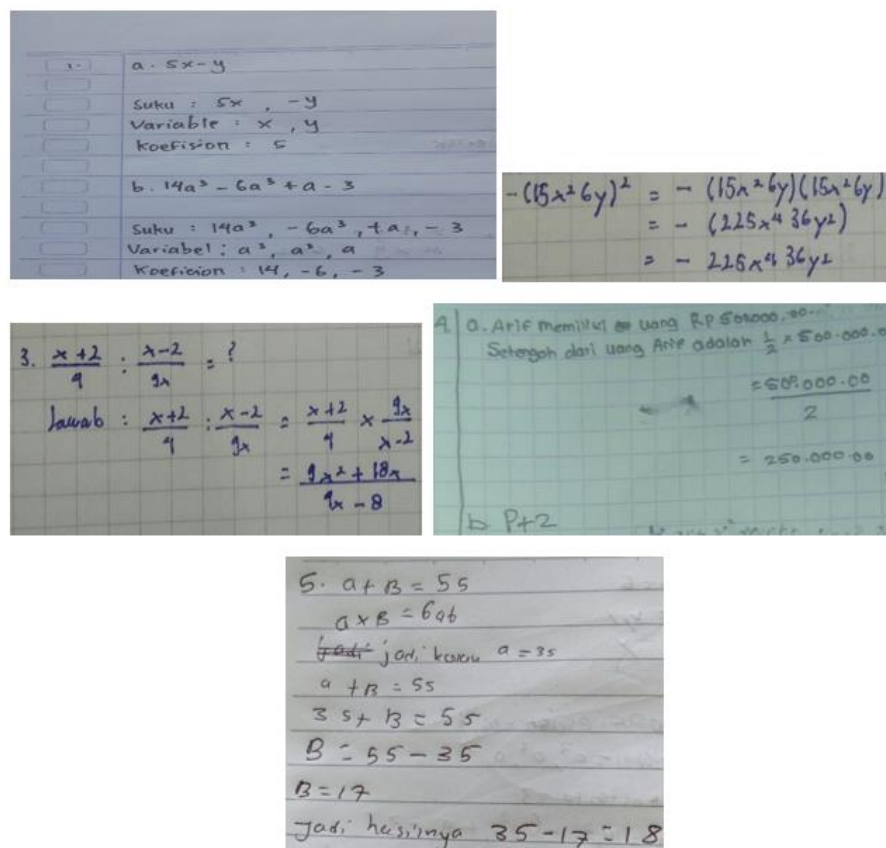 1. a. 5x-y
Suku : 5x , -y
Variable : x , y
Koefision : 5
b. 14a³ - 6a³ + a - 3
Suku : 14a³, -6a³, +a, -3
Variabel : a³, a², a
Koeficion : 14, -6, -3
-(15x²6y)² = - (15x²6y)(15x²6y)
= - (225x⁴36y²)
= - 225x⁴36y²
3. x+2/4 : x-2/9x = ?
Jawab : x+2/4 : x-2/9x = x+2/4 × 9x/x-2
= 9x²+18x/4x-8
4 a. Arif memiliki uang Rp 500.000,00
Setengah dari uang Arif adalah 1/2 × 500.000.0
= 500.000.00/2
= 250.000.00
b. P+2
5. a+B = 55
a×B = 6ab
jadi karena a = 35
a + B = 55
35 + B = 55
B = 55-35
B = 17
Jadi hasilnya 35-17=18